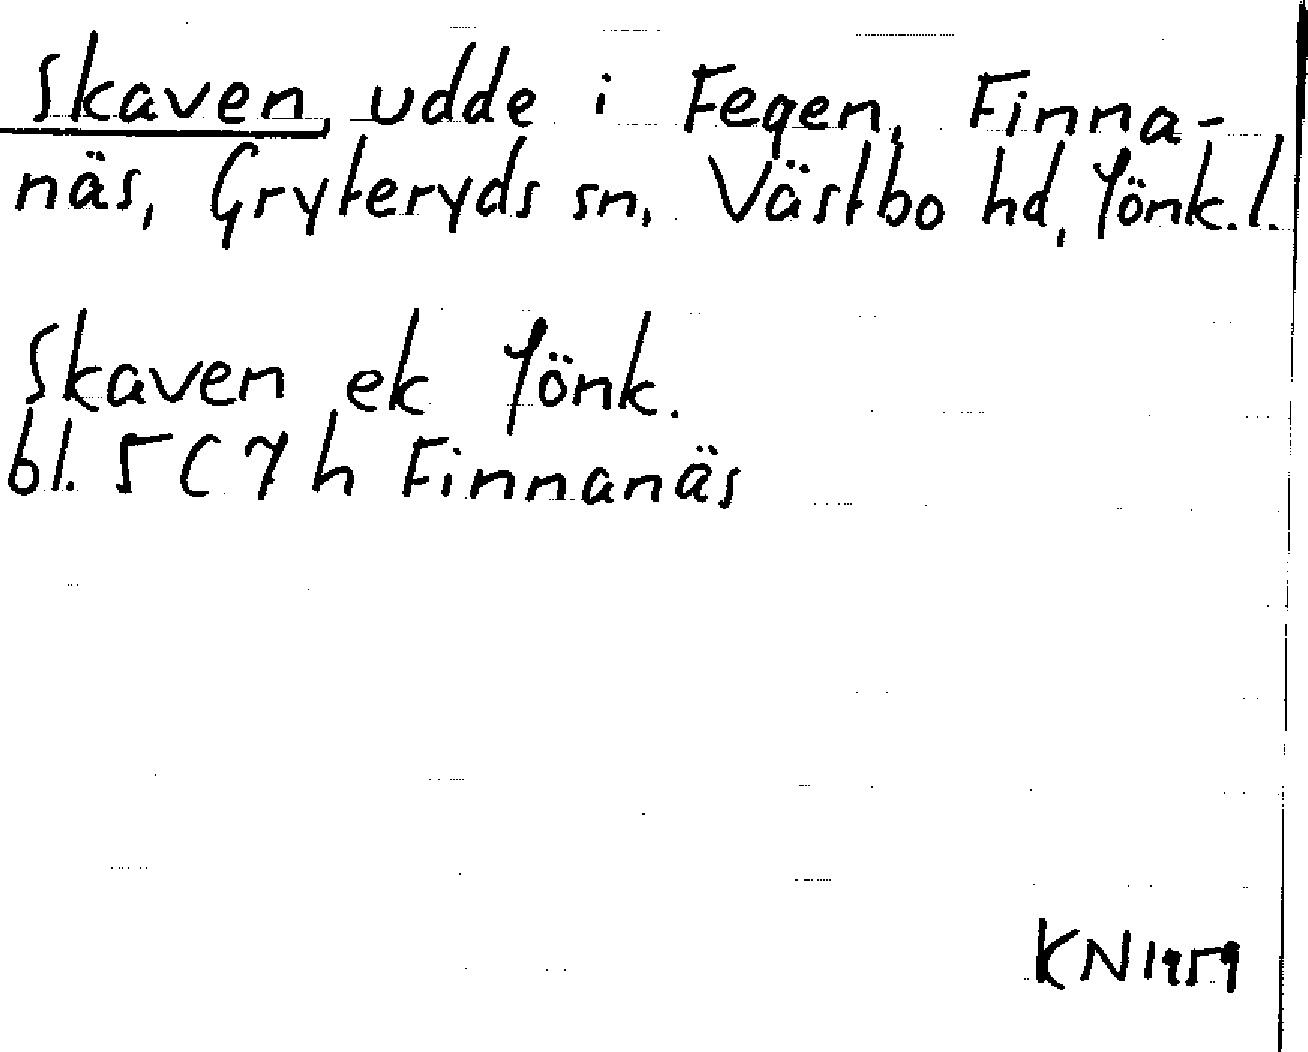 Skaven, udde i Fegen, Finna-
näs, Gryteryds sn, Västbo hd, Jönk.l.
Skaven ek Jönk.
bl. 5C7h Finnanäs
KN1959